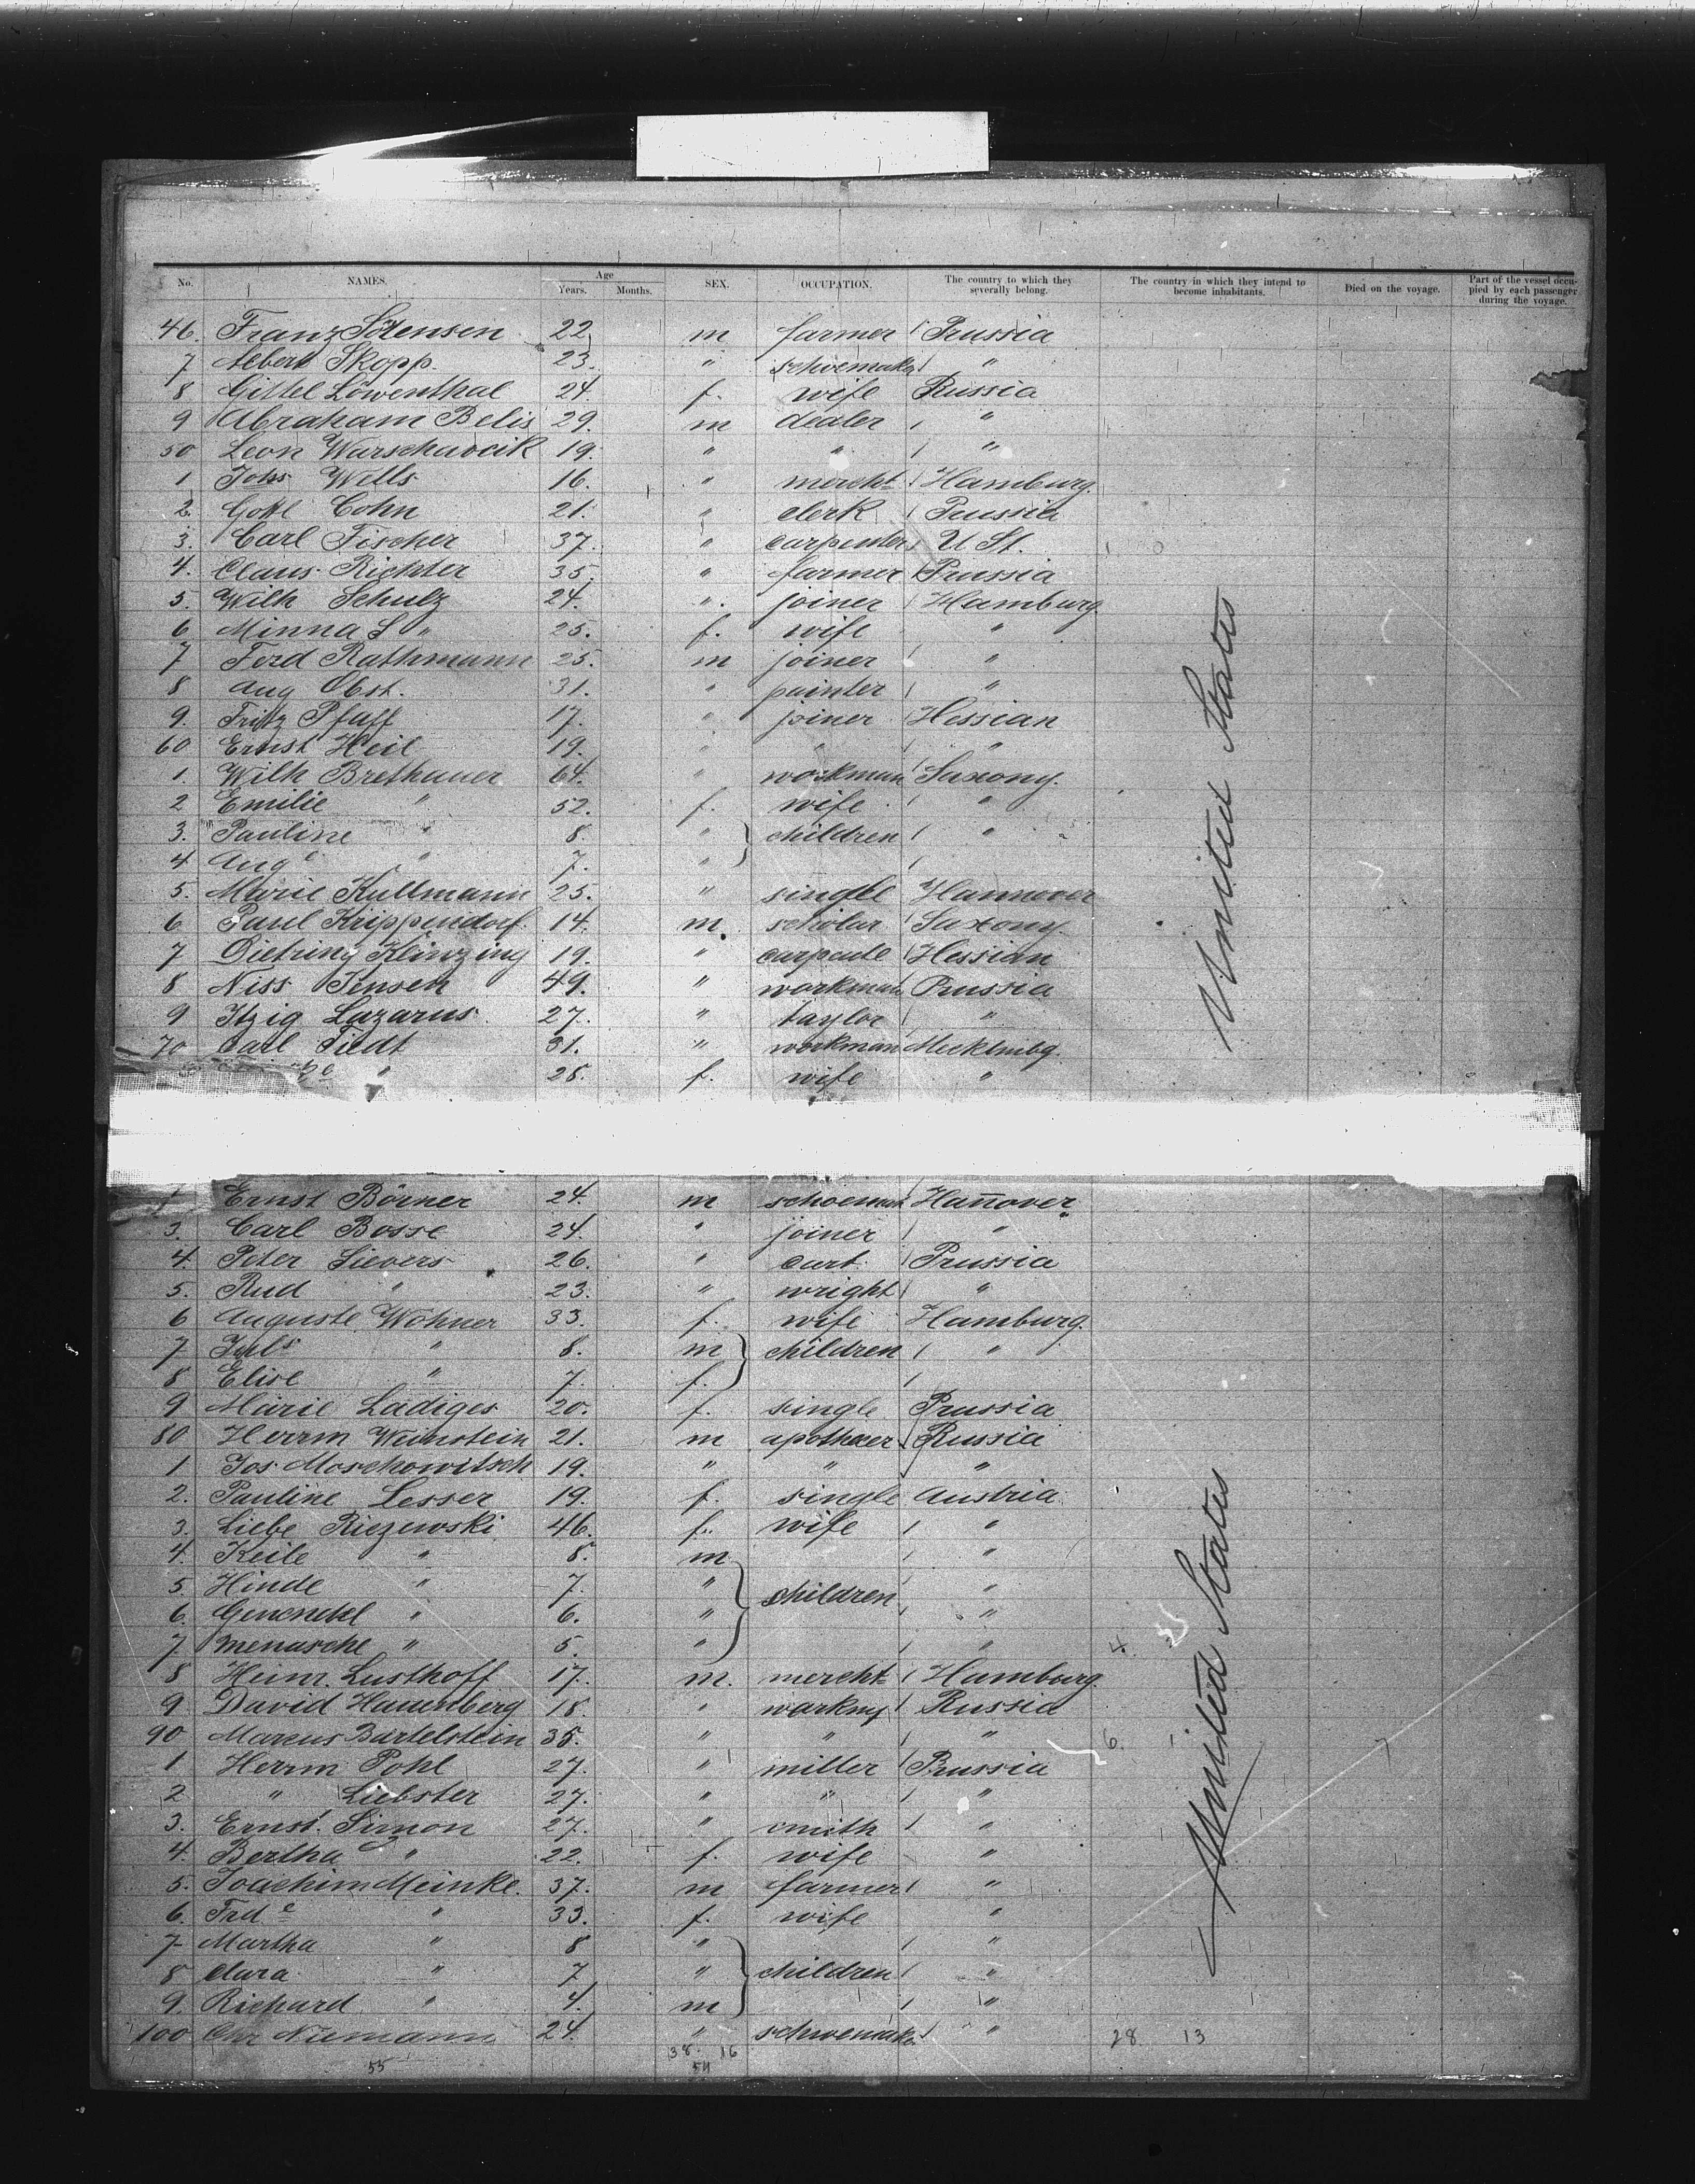 No. NAMES. Age Years. Months. SEX. OCCUPATION. The country to which they severally belong. The country in which they intend to become inhabitants. Died on the voyage. Part of the vessel occupied by each passenger during the voyage.
46. Franz Sörensen 22 m farmer Prussia
7 Albert Skopp. 23. " schoemaker "
8 Gittel Löwenthal 24. f. wife Russia
9 Abraham Belis 29. m dealer "
50 Leon Warschavcik 19. " " "
1 Johs Wells 16. " mercht Hamburg.
2. Gottl Cohn 21. " clerk Prussia
3. Carl Fischer 37. " carpenter U St.
4. Claus Richter 35. " farmer Prussia
5. Wilh Schulz 24. " joiner Hamburg.
6 Minna S " 25. f. wife "
7 Ferd Rathmann 25. m joiner "
8 Aug Obst. 31. " painter "
9. Fritz Pfaff 17. " joiner Hessian
60 Ernst Heil 19. " " "
1. Wilh Brethauer 64. " workman Saxony.
2 Emilie " 52. f. wife "
3. Pauline " 8. " children "
4 Auge " 7. "
5. Marie Kullmann 25. " single Hannover
6 Paul Krippendorf. 14. m. scholar Saxony
7 Dietring Kleinzing 19. " carpente Hessian
8 Niss Jensen 49. " workman Prussia
9 Itzig Lazarus. 27. " taylor "
70 Carl Tiedt 31. " workman Mecklmbg.
" 28. f. wife "
United States
1 Ernst Börner 24. m schoemak Hanover
3. Carl Bosse 24. " joiner "
4. Peter Sievers 26. " cart Prussia
5. Rud " 23. " wright "
6 Auguste Wöhner 33. f. wife Hamburg.
7 Juls " 8. m children "
8 Elise " 7. f.
9 Marie Ladiges 20. f. single Prussia
80 Herrm Weinstein 21. m apothecer Russia
1 Jos Moschowitsch 19. " " "
2. Pauline Lesser 19. f. single Austria
3. Liebe Riezewski 46. f. wife "
4. Keile " 8. m "
5. Hinde " 7. " children "
6. " 6. " "
7. Menasche " 5. " " 4.
8 Heinr. Lusthoff 17. m. mercht Hamburg.
9 David Hauenberg 18. " workmn Russia
90 Marcus Bartelstein 35. " " " 6.
1 Herrm Pohl 27. " miller Prussia
2 " Liebster 27. " " "
3. Ernst. Simon 27. " smith "
4. Bertha " 22. f. wife "
5. Joachim Meinke. 37. m farmer "
6. Frde " 33. f. wife "
7 Martha " 8 " "
8 Clara " 7 " children "
9. Richard " 4. m "
100 Chr Niemann 24. " schoemaker " 28. 13
United States
38. 16
55 54